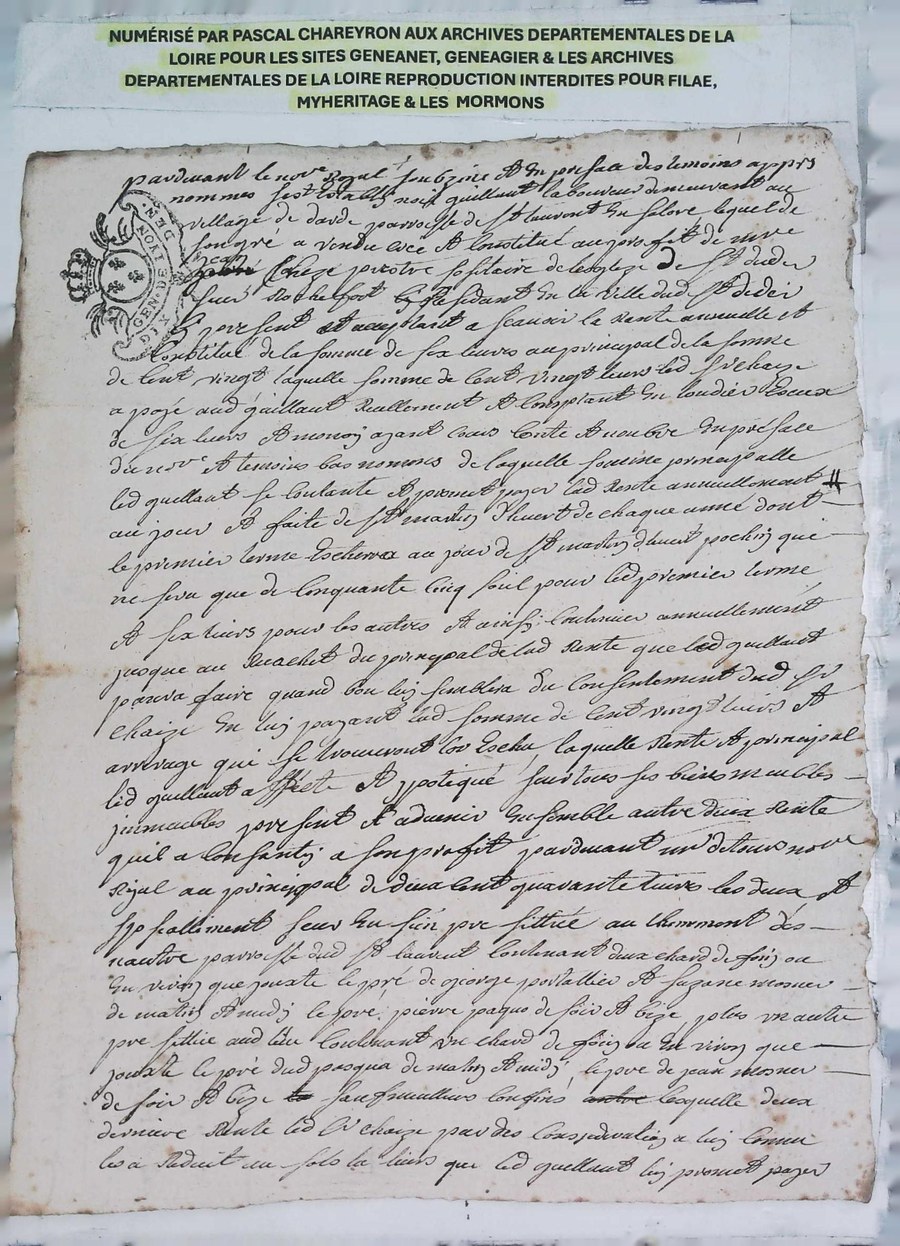 NUMÉRISÉ PAR PASCAL CHAREYRON AUX ARCHIVES DEPARTEMENTALES DE LA
LOIRE POUR LES SITES GENEANET, GENEAGIER & LES ARCHIVES
DEPARTEMENTALES DE LA LOIRE REPRODUCTION INTERDITES POUR FILAE,
MYHERITAGE & LES MORMONS
GEN. DE LYON
DIX DEN.
pardevant le no.re Royal soubsigné Et En presance des temoins appres
nommes
village de parroisse de St laurent En lequel de
son gré a vendu cede Et Constitué au profit de
Cheze prestre de leglize de St dider
Rochefort Residant En la ville dud St didier
present et acceptant a scauoir la Rante annuelle Et
Constitue de la somme de six liures au principal de la somme
de Cent vingt laquelle somme de Cent vingt liurs led Sr chaize
a payé aud quillant Reellement Et Comptant En Escux
de six liurs Et monoy ayant cours Conté Et nombré En presance
du no.re Et temoins bas nommes de laquelle somme principalle
led quillant se Contante Et promet payer lad Rente annuellement
au jour Et faite de St martin d'huert de chaque année dont
le premier terme Eschera au jour de St martin d'huert prochin qui
ne sera que de Cinquante Cinq soul pour led premier terme
Et six liurs pour les autres Et ainsi Continuer annuellement
jusque au Rachet du principal de lad Rente que led quillant
poura faire quand bon luy semblera du Consentement dud Sr
chaize En luy payant lad somme de Cent vingt liurs Et
arrerage qui se trouueront lors Eschu laquelle Rente Et principal
led quillant a affecte Et ypotiqué sur tous ses biens meubles
inmeubles present Et aduenir Ensemble autre deux Rente
quil a Consanty a son profit pardeuant no.re
Royal au principal de deux Cent quarante liures les deux Et
speciallement sur Un sien pre sittué au
parroisse dud St laurent Contenant deux chard de foin ou
En viron que jouxte le pré de george portallier Et suzane mosner
de matin Et midy le pré pierre de soir Et bize plus un autre
pre sittue aud lieu Contenant un chard de foin ou En viron que
jouxte le pré dud pasqua de matin Et midy le pre de jean mosner
de soir Et bize sauf meilleurs Confins lesquelle deux
derniere Rente led Sr chaize par des Consideration a luy Connu
les a Reduit au que led quillant luy promet payer